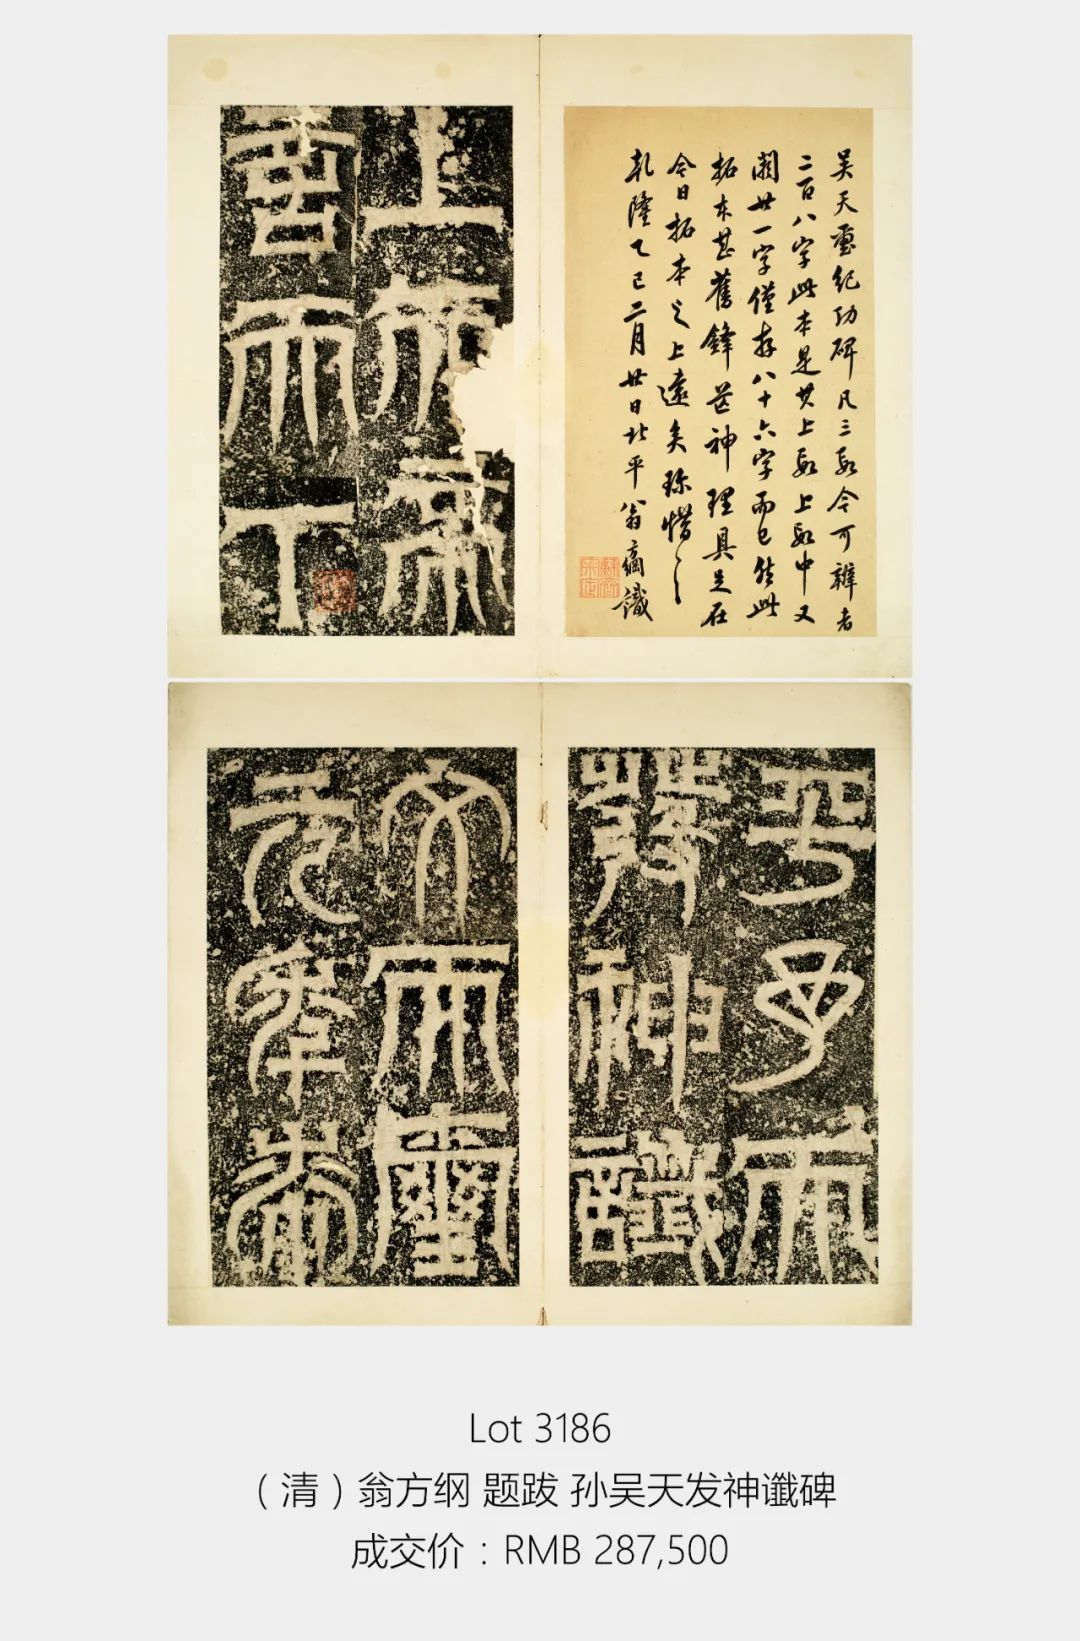 吴天璽紀功碑凡三段今可辨者
二百八字此本是其上段上段中又
闕廿一字僅存八十六字而已然此
拓本甚舊鋒芒神理具足在
今日拓本之上遠矣珍惜
乾隆乙巳二月廿日北平翁方綱識
上天帝
言天下
發神讖
文天璽
元年柒
Lot 3186
（清）翁方纲 题跋 孙吴天发神谶碑
成交价：RMB 287,500